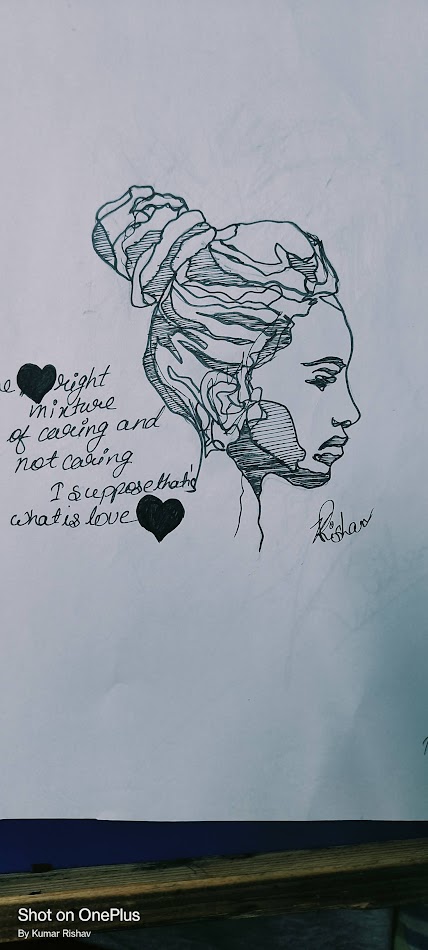 right
mixture
of caring and
not caring
I suppose that's
what is love
Rishav
Shot on OnePlus
By Kumar Rishav